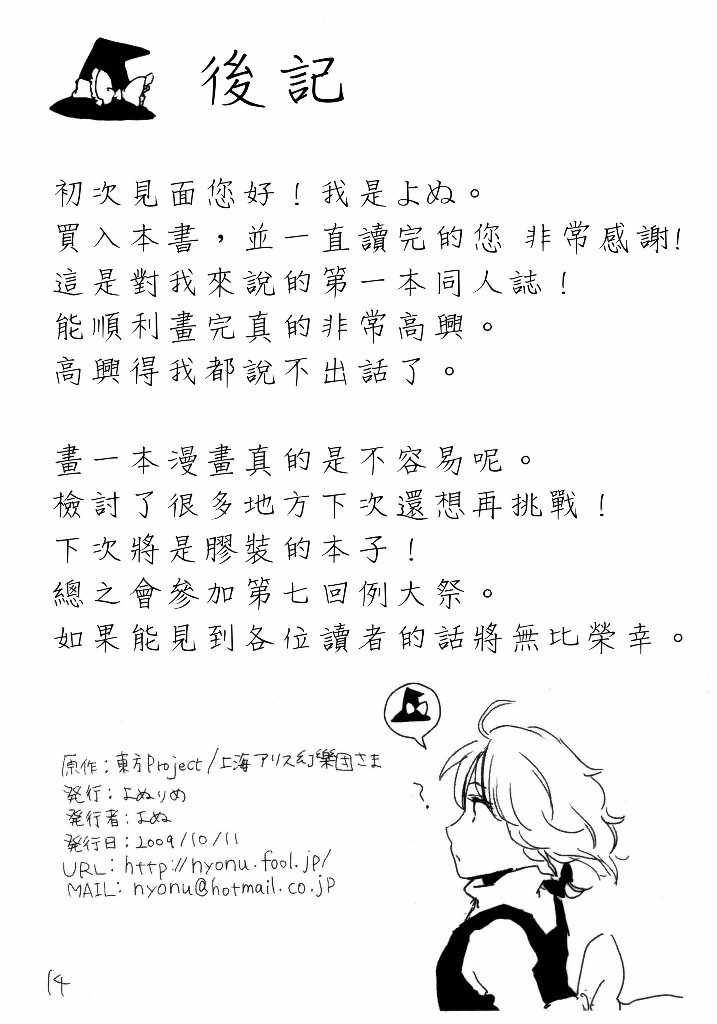 後記
初次見面您好！我是よぬ。
買入本書，並一直讀完的您 非常感謝!
這是對我來說的第一本同人誌！
能順利畫完真的非常高興。
高興得我都說不出話了。
畫一本漫畫真的是不容易呢。
檢討了很多地方下次還想再挑戰！
下次將是膠裝的本子！
總之會參加第七回例大祭。
如果能見到各位讀者的話將無比榮幸。
?
原作：東方Project/上海アリス幻樂団さま
発行：よぬりめ
発行者：よぬ
発行日：2009/10/11
URL：http://nyonu.fool.jp/
MAIL：nyonu@hotmail.co.jp
14